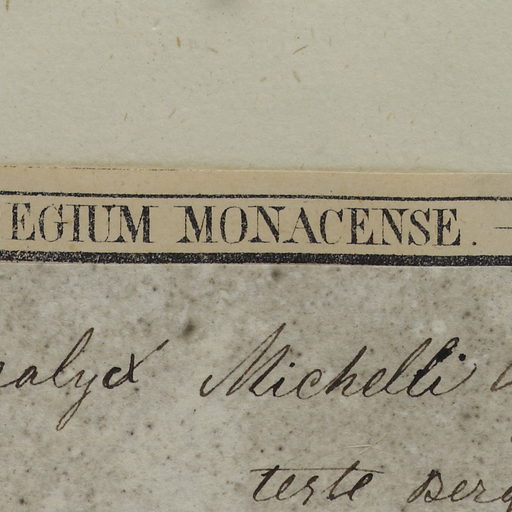 EGIUM MONACENSE. —
alyx Michelli
teste Berg